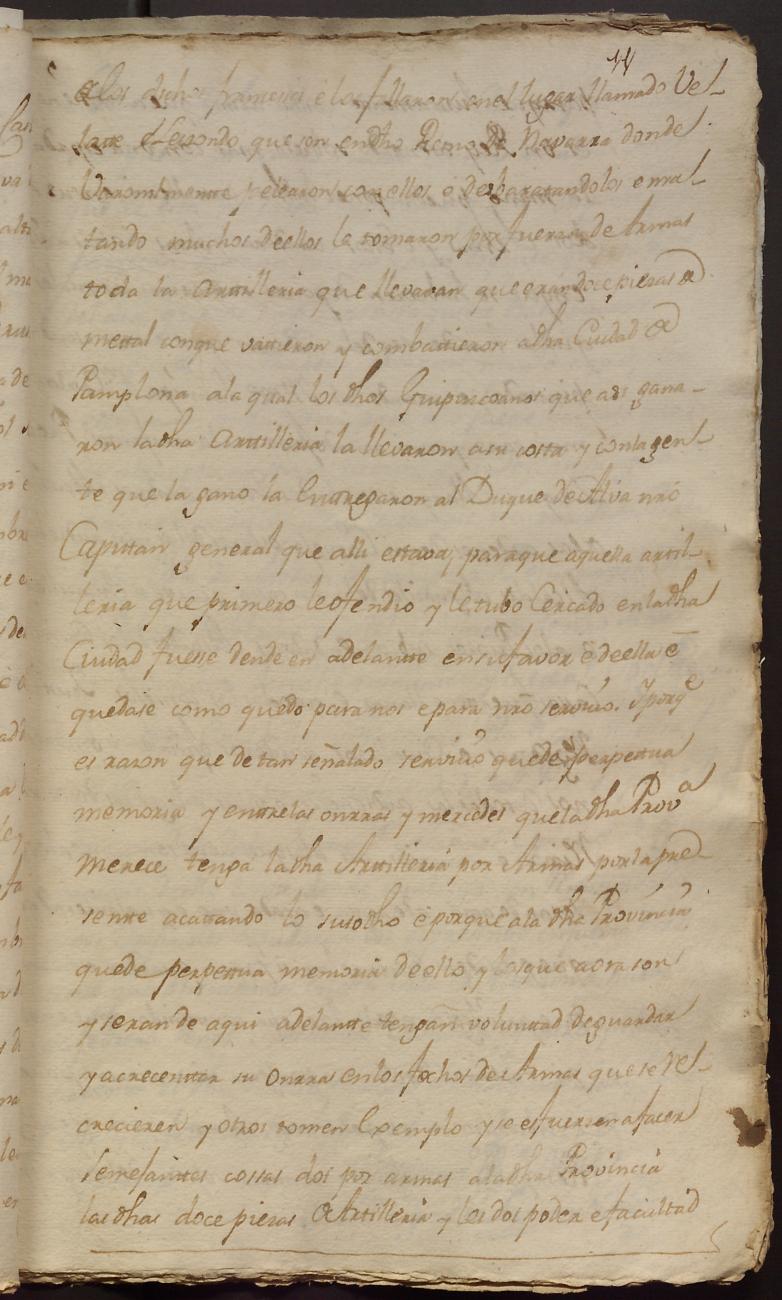 14
a los dichos franceses e los fallaron en el lugar llamado Vel-
latte Eleisondo que son en dho Reino de Navarra donde
Varonilmentte pelearon con ellos e desbaratandolos e mal-
tando muchos de ellos le tomaron por fuerza de Armas
toda la Arttilleria que llevavan que eran doce piezas de
mettal con que vattieron y combattieron a dha Ciudad de
Pamplona a la qual los dhos Guipuzcoanos que asi gana-
ron la dha Arttilleria la llevaron a su costa y con la gen-
te que la gano la Enttregaron al Duque de Alva nrõ
Capittan general que alli estava, para que aquella artil-
leria que primero le ofendio y le tubo Cercado en la dha
Ciudad fuesse dende en adelantte en su favor e de ella e
quedase como quedo para nos e para nrõ servicio. Y porq.e
es razon que de tan señalado servicio quede perpettua
memoria y enttre las onrras y mercedes que la dha Prov.a
Merece tenga la dha Arttilleria por Armas por la pre-
sentte acattando lo susodho e porque a la dha Provincia
quede perpettua memoria de ello y los que aora son
y seran de aqui adelantte tengan volunttad de guardar
y acrecenttar su onrra en los fechos de Armas que se re-
crecieren y otros tomen Exemplo y se esfuerzen a facer
semejanttes cossas dos por armas a la dha Provincia
las dhas doce piezas de Artilleria y les dos poder e facultad